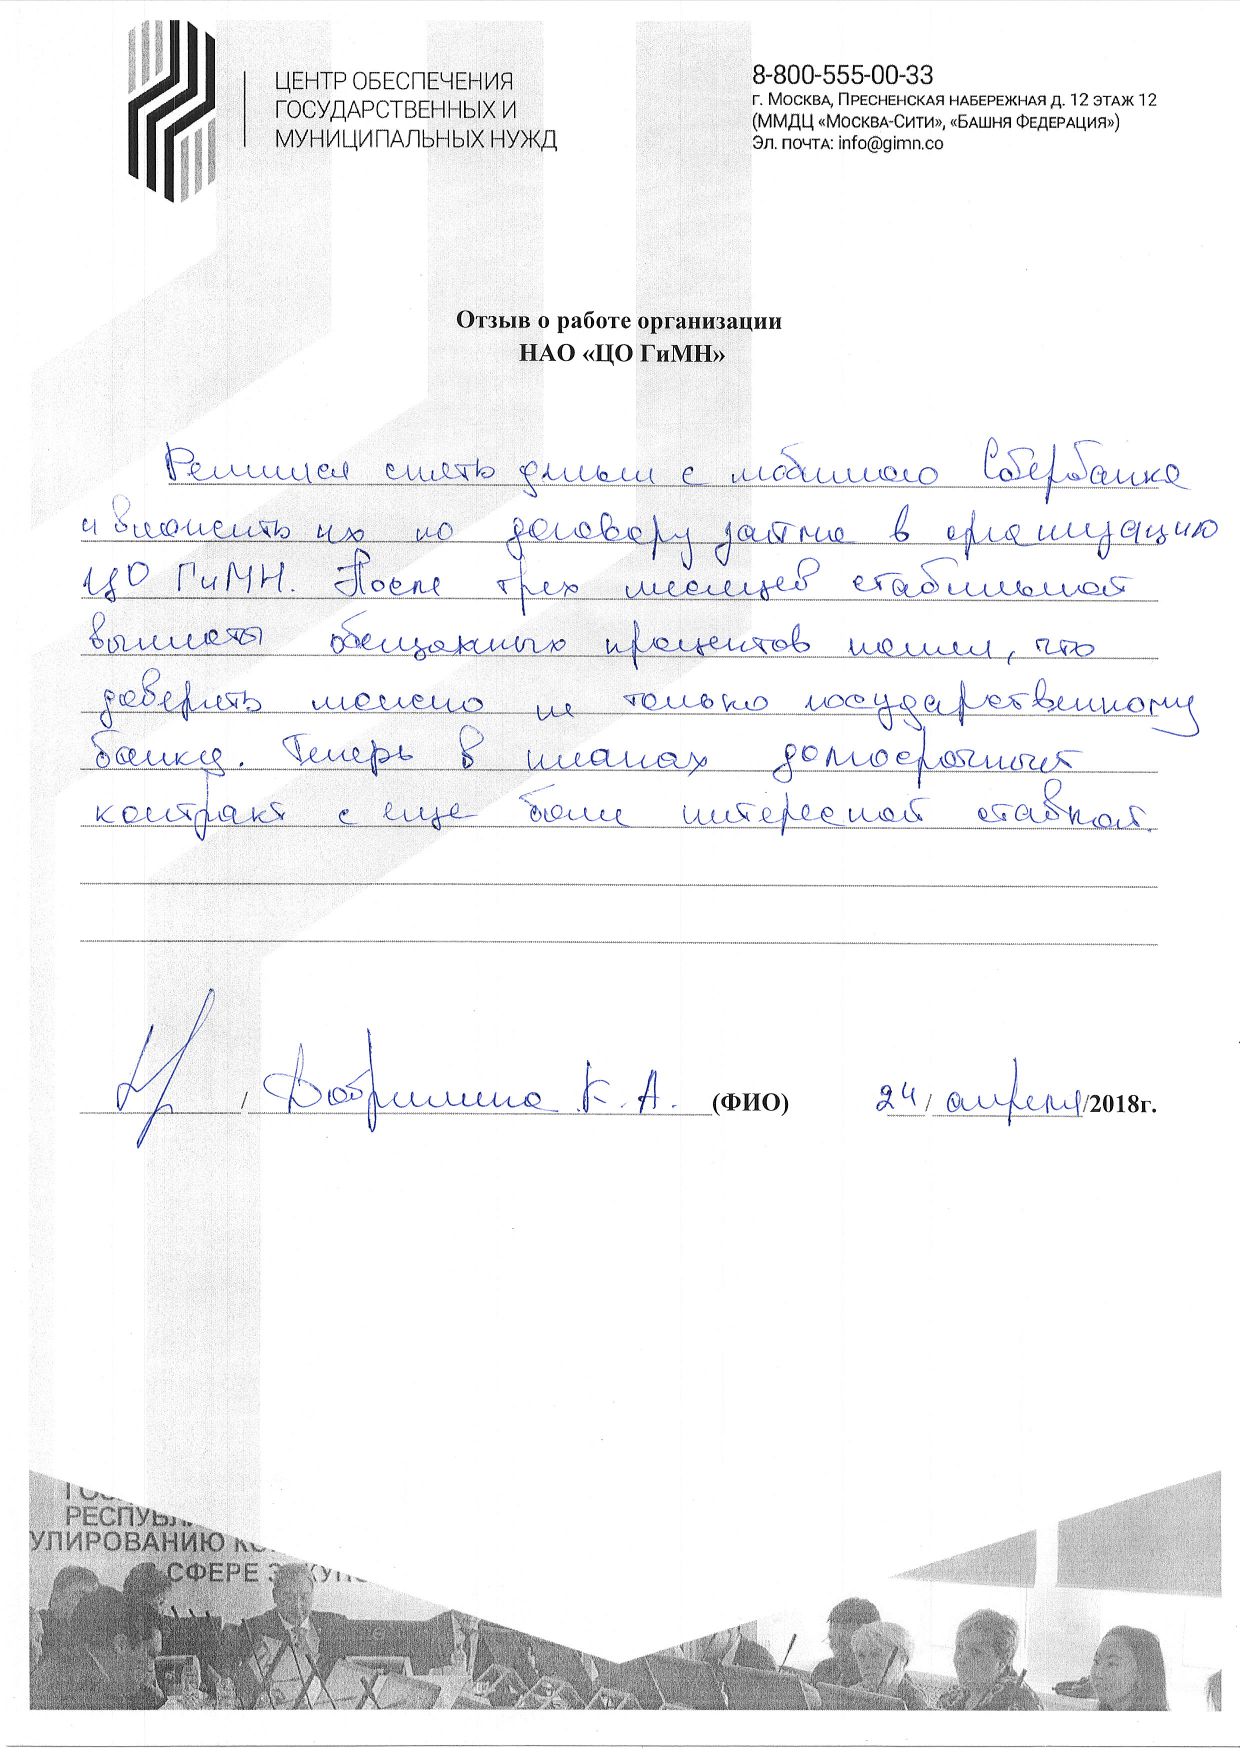 ЦЕНТР ОБЕСПЕЧЕНИЯ
ГОСУДАРСТВЕННЫХ И
МУНИЦИПАЛЬНЫХ НУЖД
8-800-555-00-33
г. Москва, Пресненская набережная д. 12 этаж 12
(ММДЦ «Москва-Сити», «Башня Федерация»)
Эл. почта: info@gimn.co
Отзыв о работе организации
НАО «ЦО ГиМН»
Решился снять деньги с любимого Сбербанка
и вложить их по договору займа в организацию
ЦО ГиМН. После трех месяцев стабильной
выплаты обещанных процентов понял, что
доверять можно не только государственному
банку. Теперь в планах долгосрочный
контракт с еще более интересной ставкой.
/ К. А. (ФИО) 24 / апреля /2018г.
РЕСПУБЛ
УЛИРОВАНИЮ КО
СФЕРЕ ЗАКУП